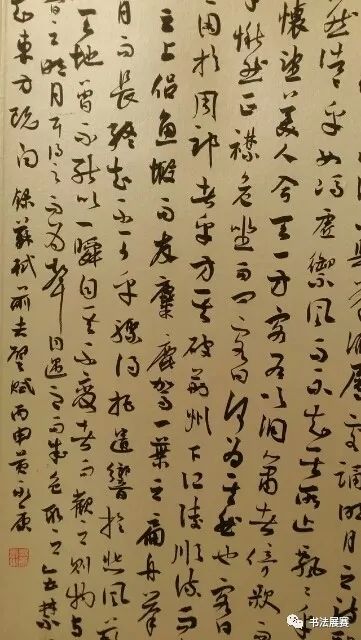 明月之诗
浩浩乎如冯虚御风而不知其所止飘飘乎
怀望美人兮天一方客有吹洞箫者倚歌
愀然正襟危坐而问客曰何为其然也客曰
困于周郎者乎方其破荆州下江陵顺流而
之上侣鱼虾而友麋鹿驾一叶之扁舟举
月而长终知不可乎骤得托遗响于悲风
天地曾不能以一瞬自其不变者而观之则物与
之明月耳得之而为声目遇之而成色取之无禁
知东方既白 录苏轼前赤壁赋丙申黄永
书法展赛